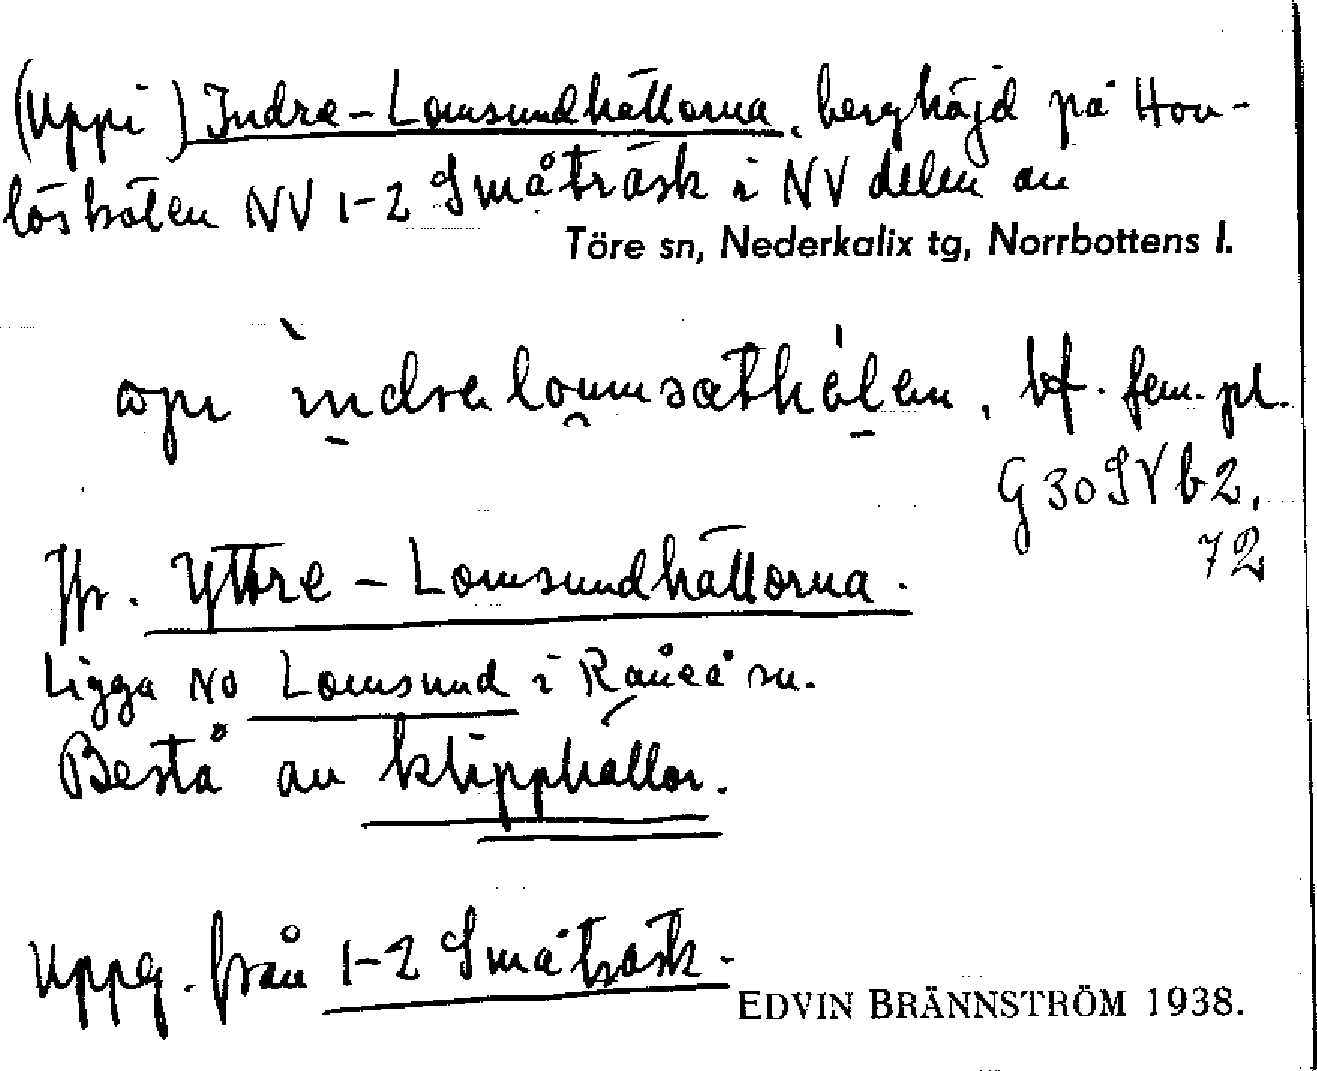 (Uppi) Indre-Lomsundhällorna, berghöjd på Hov-
löshöten NV 1-2 Småträsk i NV delen av
Töre sn, Nederkalix tg, Norrbottens l.
bf. fem. pl.
G 30 SV b 2,
72
Jfr. Yttre-Lomsundhällorna.
Ligga NO Lomsund i Råneå sn.
Bestå av klipphällar.
Uppg. från 1-2 Småträsk.
EDVIN BRÄNNSTRÖM 1938.